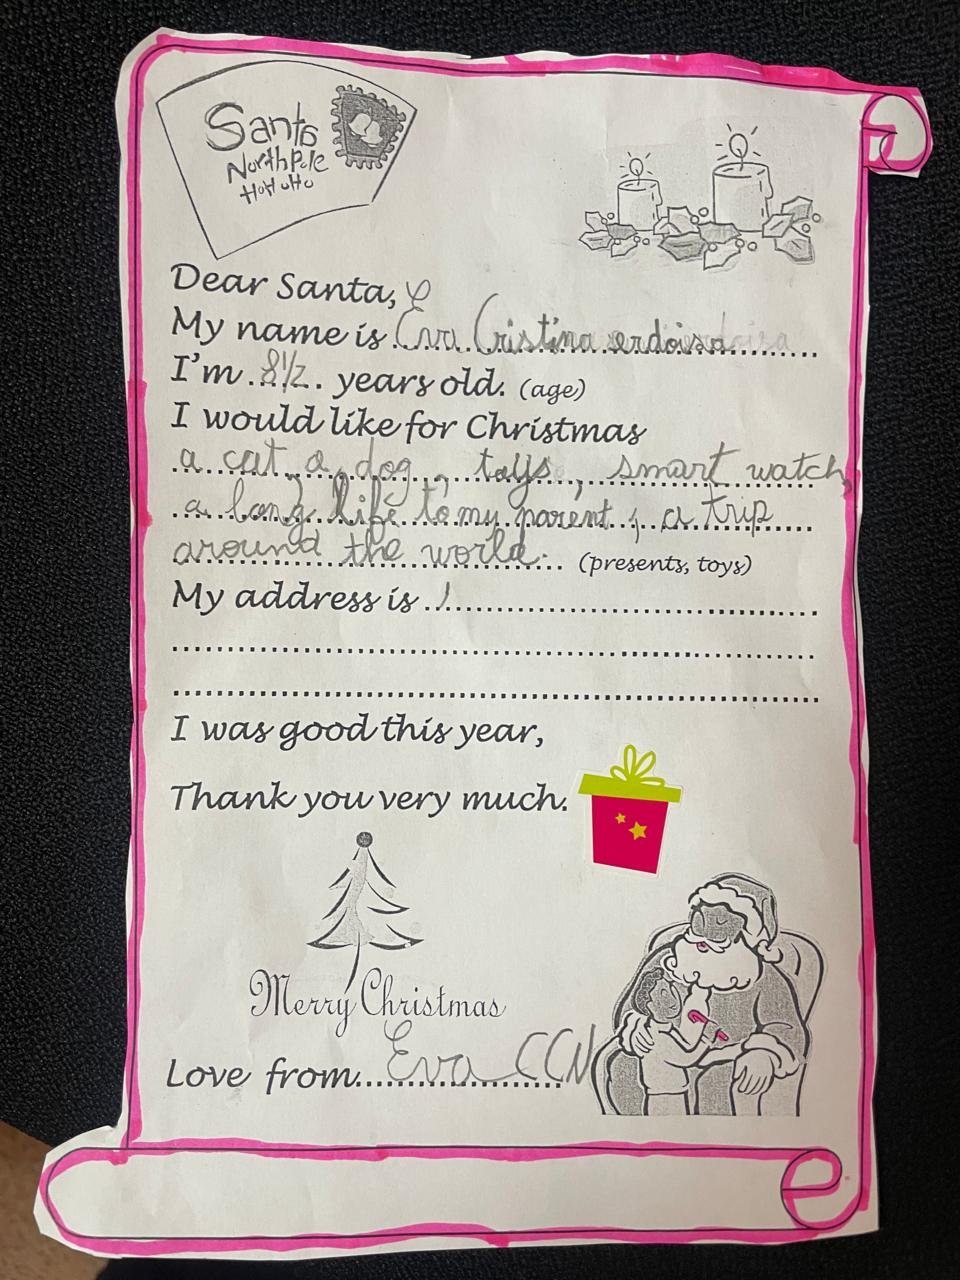 Santa
North Pole
HoHoHo
Dear Santa,
My name is Eva Cristina
I'm 8 1/2 years old. (age)
I would like for Christmas
a cat, a dog, toys, smart watch,
a long life to my parent, a trip
around the world. (presents, toys)
My address is
I was good this year,
Thank you very much.
Merry Christmas
Love from Eva CCN